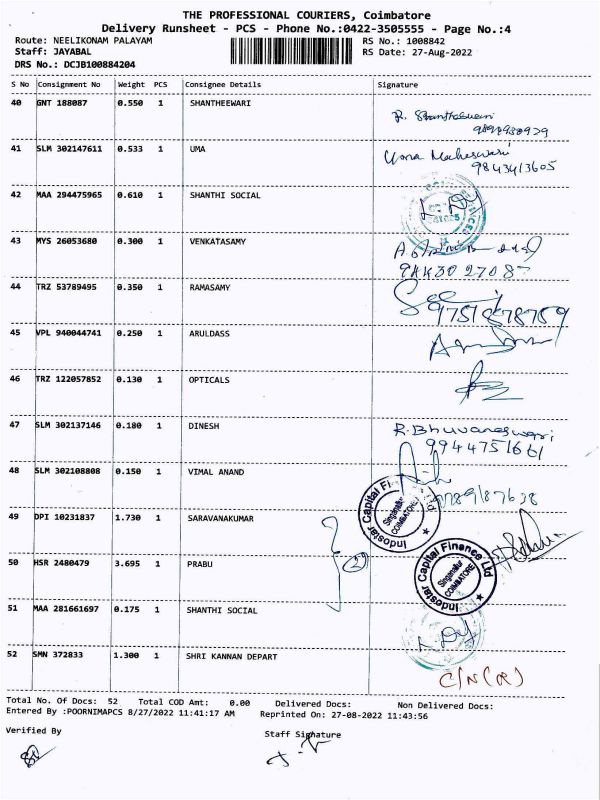 THE PROFESSIONAL COURIERS, Coimbatore
Delivery Runsheet - PCS - Phone No.:0422-3505555 - Page No.:4
Route: NEELIKONAM PALAYAM
RS No.: 1008842
Staff: JAYABAL
RS Date: 27-Aug-2022
DRS No.: DCJB100884204
S No Consignment No Weight PCS Consignee Details Signature
40 GNT 188087 0.550 1 SHANTHEEWARI
R. Shantheewari
41 SLM 302147611 0.533 1 UMA
Uma Maheswari
9843413605
42 MAA 294475965 0.610 1 SHANTHI SOCIAL
43 MYS 26053680 0.300 1 VENKATASAMY
44 TRZ 53789495 0.350 1 RAMASAMY
9751878759
45 VPL 940044741 0.250 1 ARULDASS
46 TRZ 122057852 0.130 1 OPTICALS
47 SLM 302137146 0.180 1 DINESH
R.Bhuvaneswari
9944751661
48 SLM 302108808 0.150 1 VIMAL ANAND
49 DPI 10231837 1.730 1 SARAVANAKUMAR
Indostar Capital Fi
Singanallur
COIMBATORE
50 HSR 2480479 3.695 1 PRABU
(2)
Indostar Capital Finance Ltd
Singanallur
COIMBATORE
51 MAA 281661697 0.175 1 SHANTHI SOCIAL
52 SMN 372833 1.300 1 SHRI KANNAN DEPART
C/N(R)
Total No. Of Docs: 52 Total COD Amt: 0.00 Delivered Docs: Non Delivered Docs:
Entered By :POORNIMAPCS 8/27/2022 11:41:17 AM Reprinted On: 27-08-2022 11:43:56
Verified By
Staff Signature